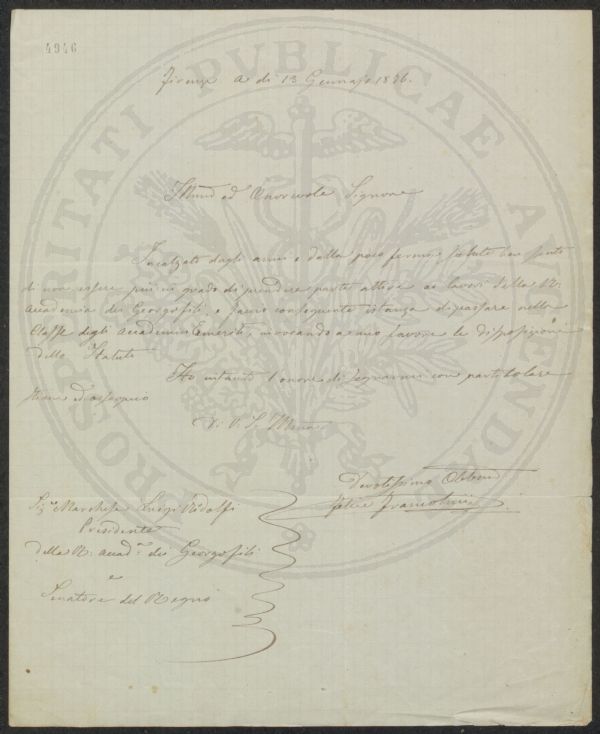 4946
PROSPERITATI PVBLICAE AVGENDAE
Firenze a di 13 Gennajo 1876.
Illmo ed Onorevole Signore
Incalzato dagli anni e dalla poco ferma salute ben sento
di non essere più in grado di prendere parte attiva ai lavori della R.
Accademia dei Georgofili, e faccio conseguente istanza di passare nella
Classe degli Accademici Emeriti, invocando a mio favore le disposizioni
dello Statuto
Ho intanto l'onore di segnarmi con particolare
stima ed ossequio
Di V. S. Illma
Devotissimo Obbmo
Felice Francolini
Sigr Marchese Luigi Ridolfi
Presidente
della R. Accada dei Georgofili
e
Senatore del Regno